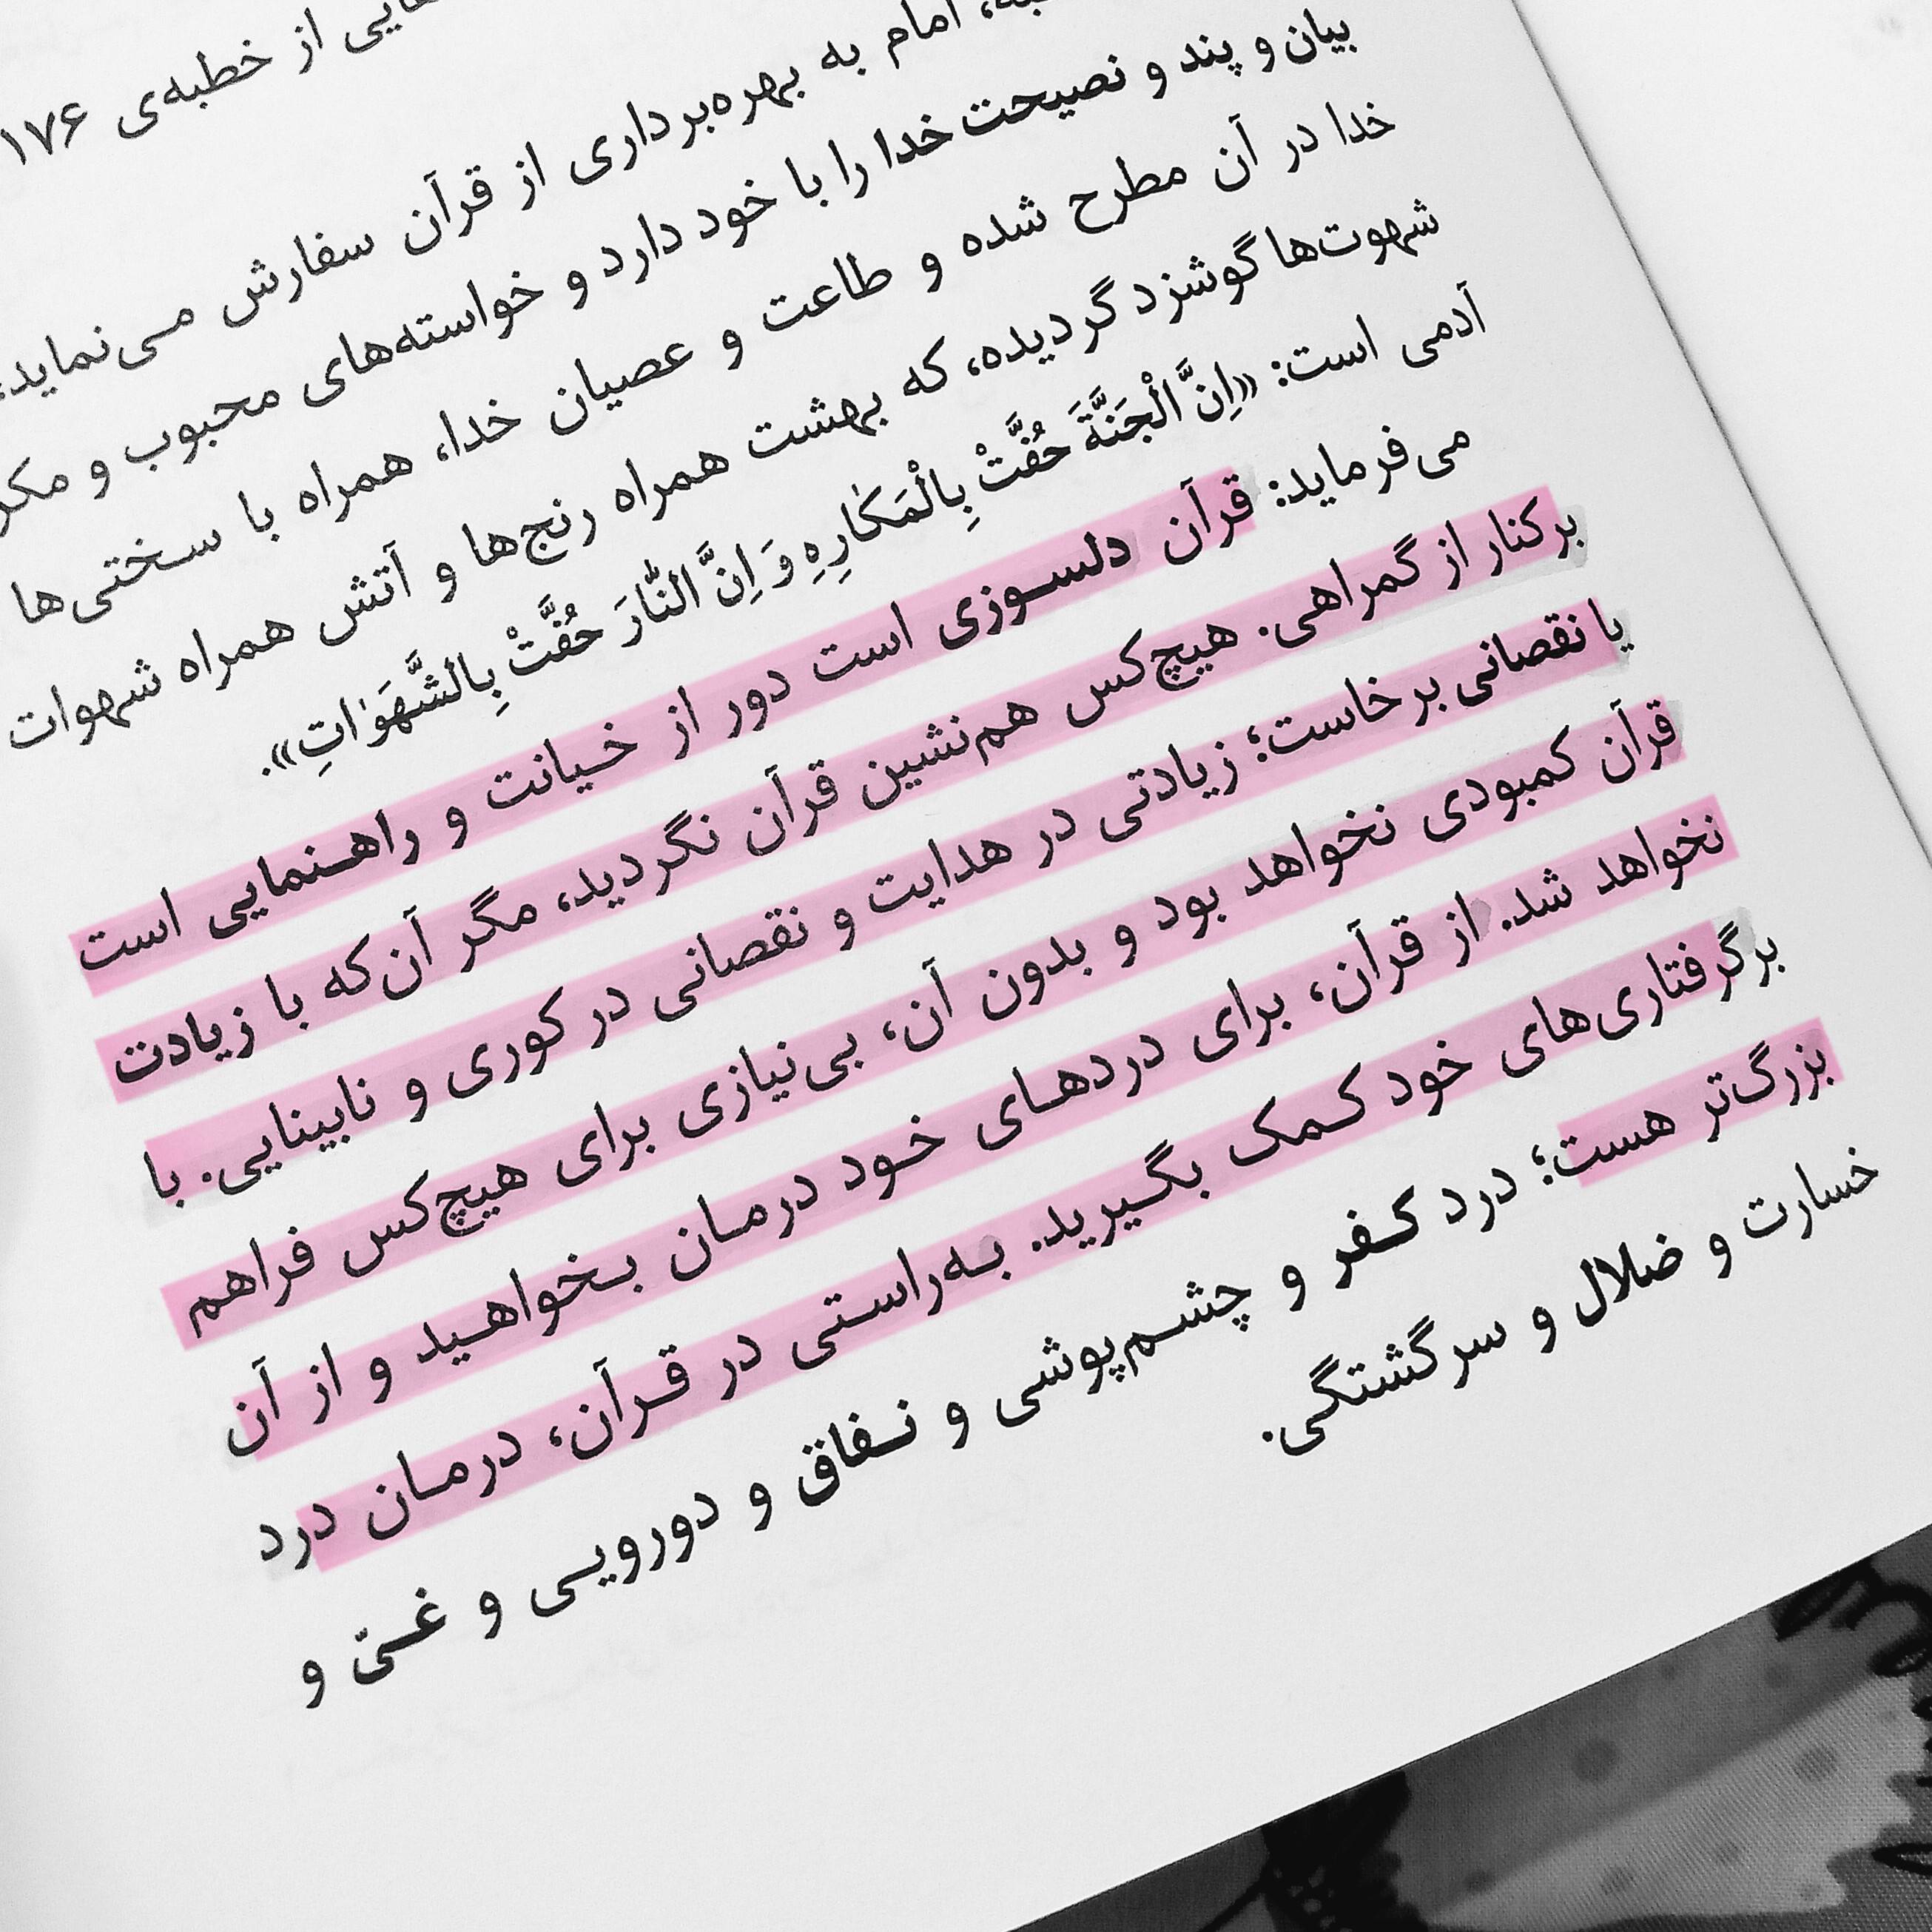 از خطبه‌ی ۱۷۶
امام به بهره‌برداری از قرآن سفارش می‌نماید،
بیان و پند و نصیحت خدا را با خود دارد و خواسته‌های محبوب و
خدا در آن مطرح شده و طاعت و عصیان خدا، همراه با سختی‌ها
شهوت‌ها گوشزد گردیده، که بهشت همراه رنج‌ها و آتش همراه شهوات
آدمی است: «اِنَّ الْجَنَّةَ حُفَّتْ بِالْمَکٰارِهِ وَ اِنَّ النّٰارَ حُفَّتْ بِالشَّهَوٰاتِ».
می‌فرماید: قرآن دلسوزی است دور از خیانت و راهنمایی است
برکنار از گمراهی. هیچ‌کس هم‌نشین قرآن نگردید، مگر آن‌که با زیادت
یا نقصانی برخاست؛ زیادتی در هدایت و نقصانی در کوری و نابینایی. با
قرآن کمبودی نخواهد بود و بدون آن، بی‌نیازی برای هیچ‌کس فراهم
نخواهد شد. از قرآن، برای دردهای خود درمان بخواهید و از آن
برگرفتاری‌های خود کمک بگیرید. به‌راستی در قرآن، درمان درد
بزرگ‌تر هست؛ درد کفر و چشم‌پوشی و نفاق و دورویی و غیّ و
خسارت و ضلال و سرگشتگی.